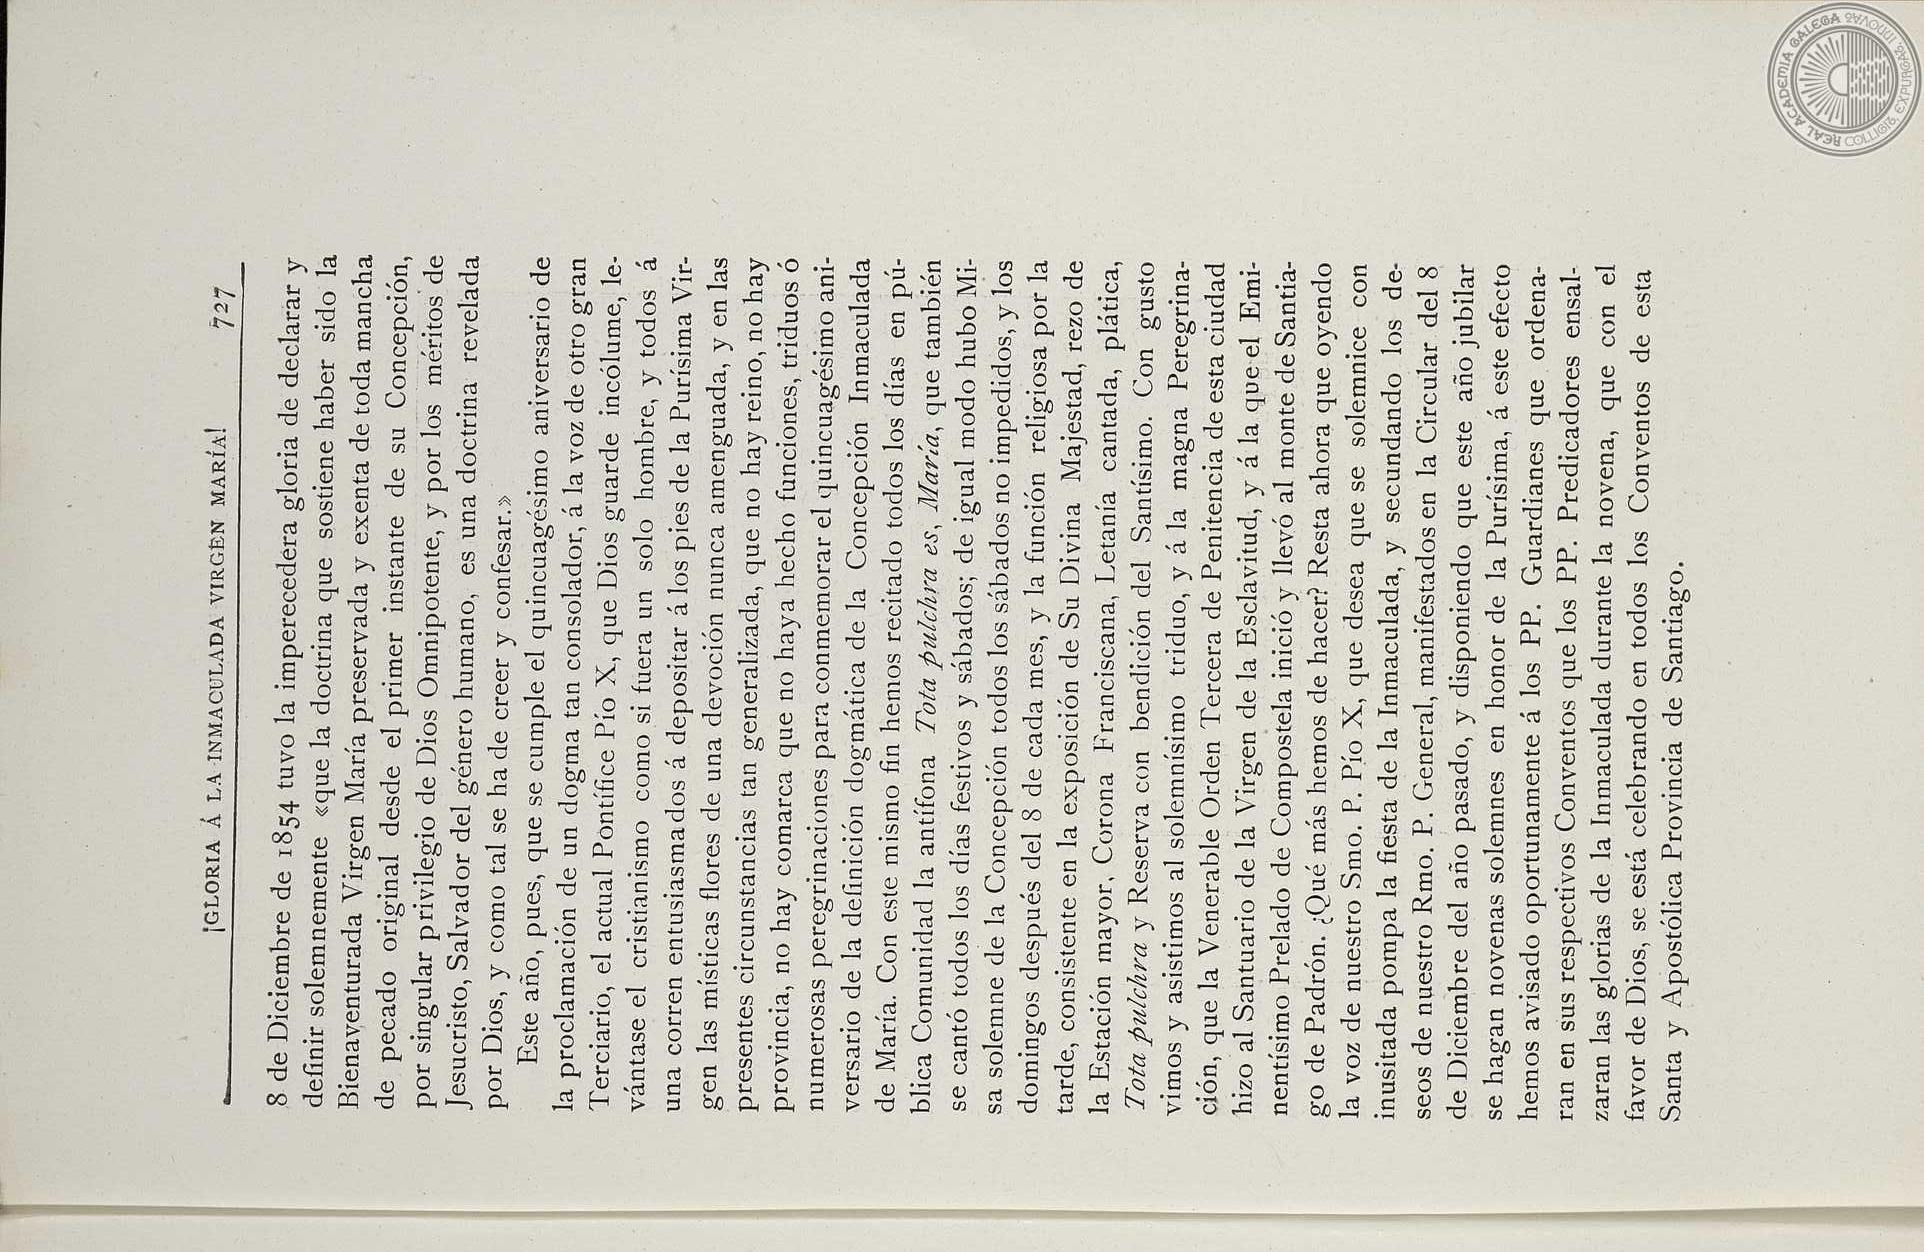 ¡GLORIA Á LA INMACULADA VIRGEN MARÍA! 727
8 de Diciembre de 1854 tuvo la imperecedera gloria de declarar y
definir solemnemente «que la doctrina que sostiene haber sido la
Bienaventurada Virgen María preservada y exenta de toda mancha
de pecado original desde el primer instante de su Concepción,
por singular privilegio de Dios Omnipotente, y por los méritos de
Jesucristo, Salvador del género humano, es una doctrina revelada
por Dios, y como tal se ha de creer y confesar.»
Este año, pues, que se cumple el quincuagésimo aniversario de
la proclamación de un dogma tan consolador, á la voz de otro gran
Terciario, el actual Pontífice Pío X, que Dios guarde incólume, le-
vántase el cristianismo como si fuera un solo hombre, y todos á
una corren entusiasmados á depositar á los pies de la Purísima Vir-
gen las místicas flores de una devoción nunca amenguada, y en las
presentes circunstancias tan generalizada, que no hay reino, no hay
provincia, no hay comarca que no haya hecho funciones, triduos ó
numerosas peregrinaciones para conmemorar el quincuagésimo ani-
versario de la definición dogmática de la Concepción Inmaculada
de María. Con este mismo fin hemos recitado todos los días en pú-
blica Comunidad la antífona Tota pulchra es, María, que también
se cantó todos los días festivos y sábados; de igual modo hubo Mi-
sa solemne de la Concepción todos los sábados no impedidos, y los
domingos después del 8 de cada mes, y la función religiosa por la
tarde, consistente en la exposición de Su Divina Majestad, rezo de
la Estación mayor, Corona Franciscana, Letanía cantada, plática,
Tota pulchra y Reserva con bendición del Santísimo. Con gusto
vimos y asistimos al solemnísimo triduo, y á la magna Peregrina-
ción, que la Venerable Orden Tercera de Penitencia de esta ciudad
hizo al Santuario de la Virgen de la Esclavitud, y á la que el Emi-
nentísimo Prelado de Compostela inició y llevó al monte de Santia-
go de Padrón. ¿Qué más hemos de hacer? Resta ahora que oyendo
la voz de nuestro Smo. P. Pío X, que desea que se solemnice con
inusitada pompa la fiesta de la Inmaculada, y secundando los de-
seos de nuestro Rmo. P. General, manifestados en la Circular del 8
de Diciembre del año pasado, y disponiendo que este año jubilar
se hagan novenas solemnes en honor de la Purísima, á este efecto
hemos avisado oportunamente á los PP. Guardianes que ordena-
ran en sus respectivos Conventos que los PP. Predicadores ensal-
zaran las glorias de la Inmaculada durante la novena, que con el
favor de Dios, se está celebrando en todos los Conventos de esta
Santa y Apostólica Provincia de Santiago.
REAL ACADEMIA GALEGA
COLLIGIT, EXPURGAT, INNOVAT